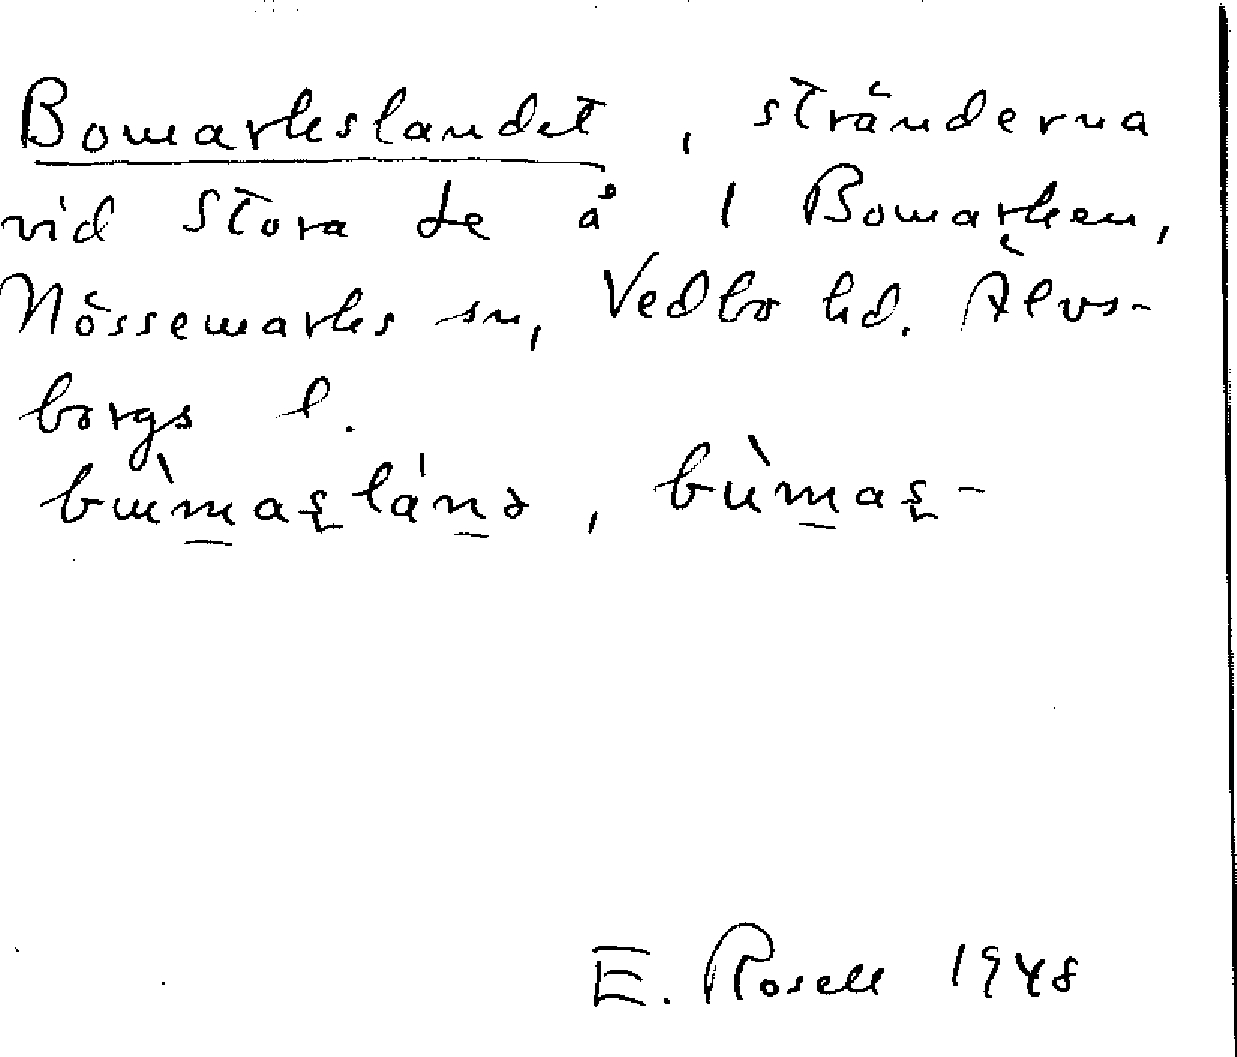 Bomarkslandet, stränderna
vid Stora Le å 1 Bomarken,
Nössemarks sn, Vedbo hd. Älvs-
borgs l.
bùmaʂlánə, bùmaʂ-
E. Rosell 1948